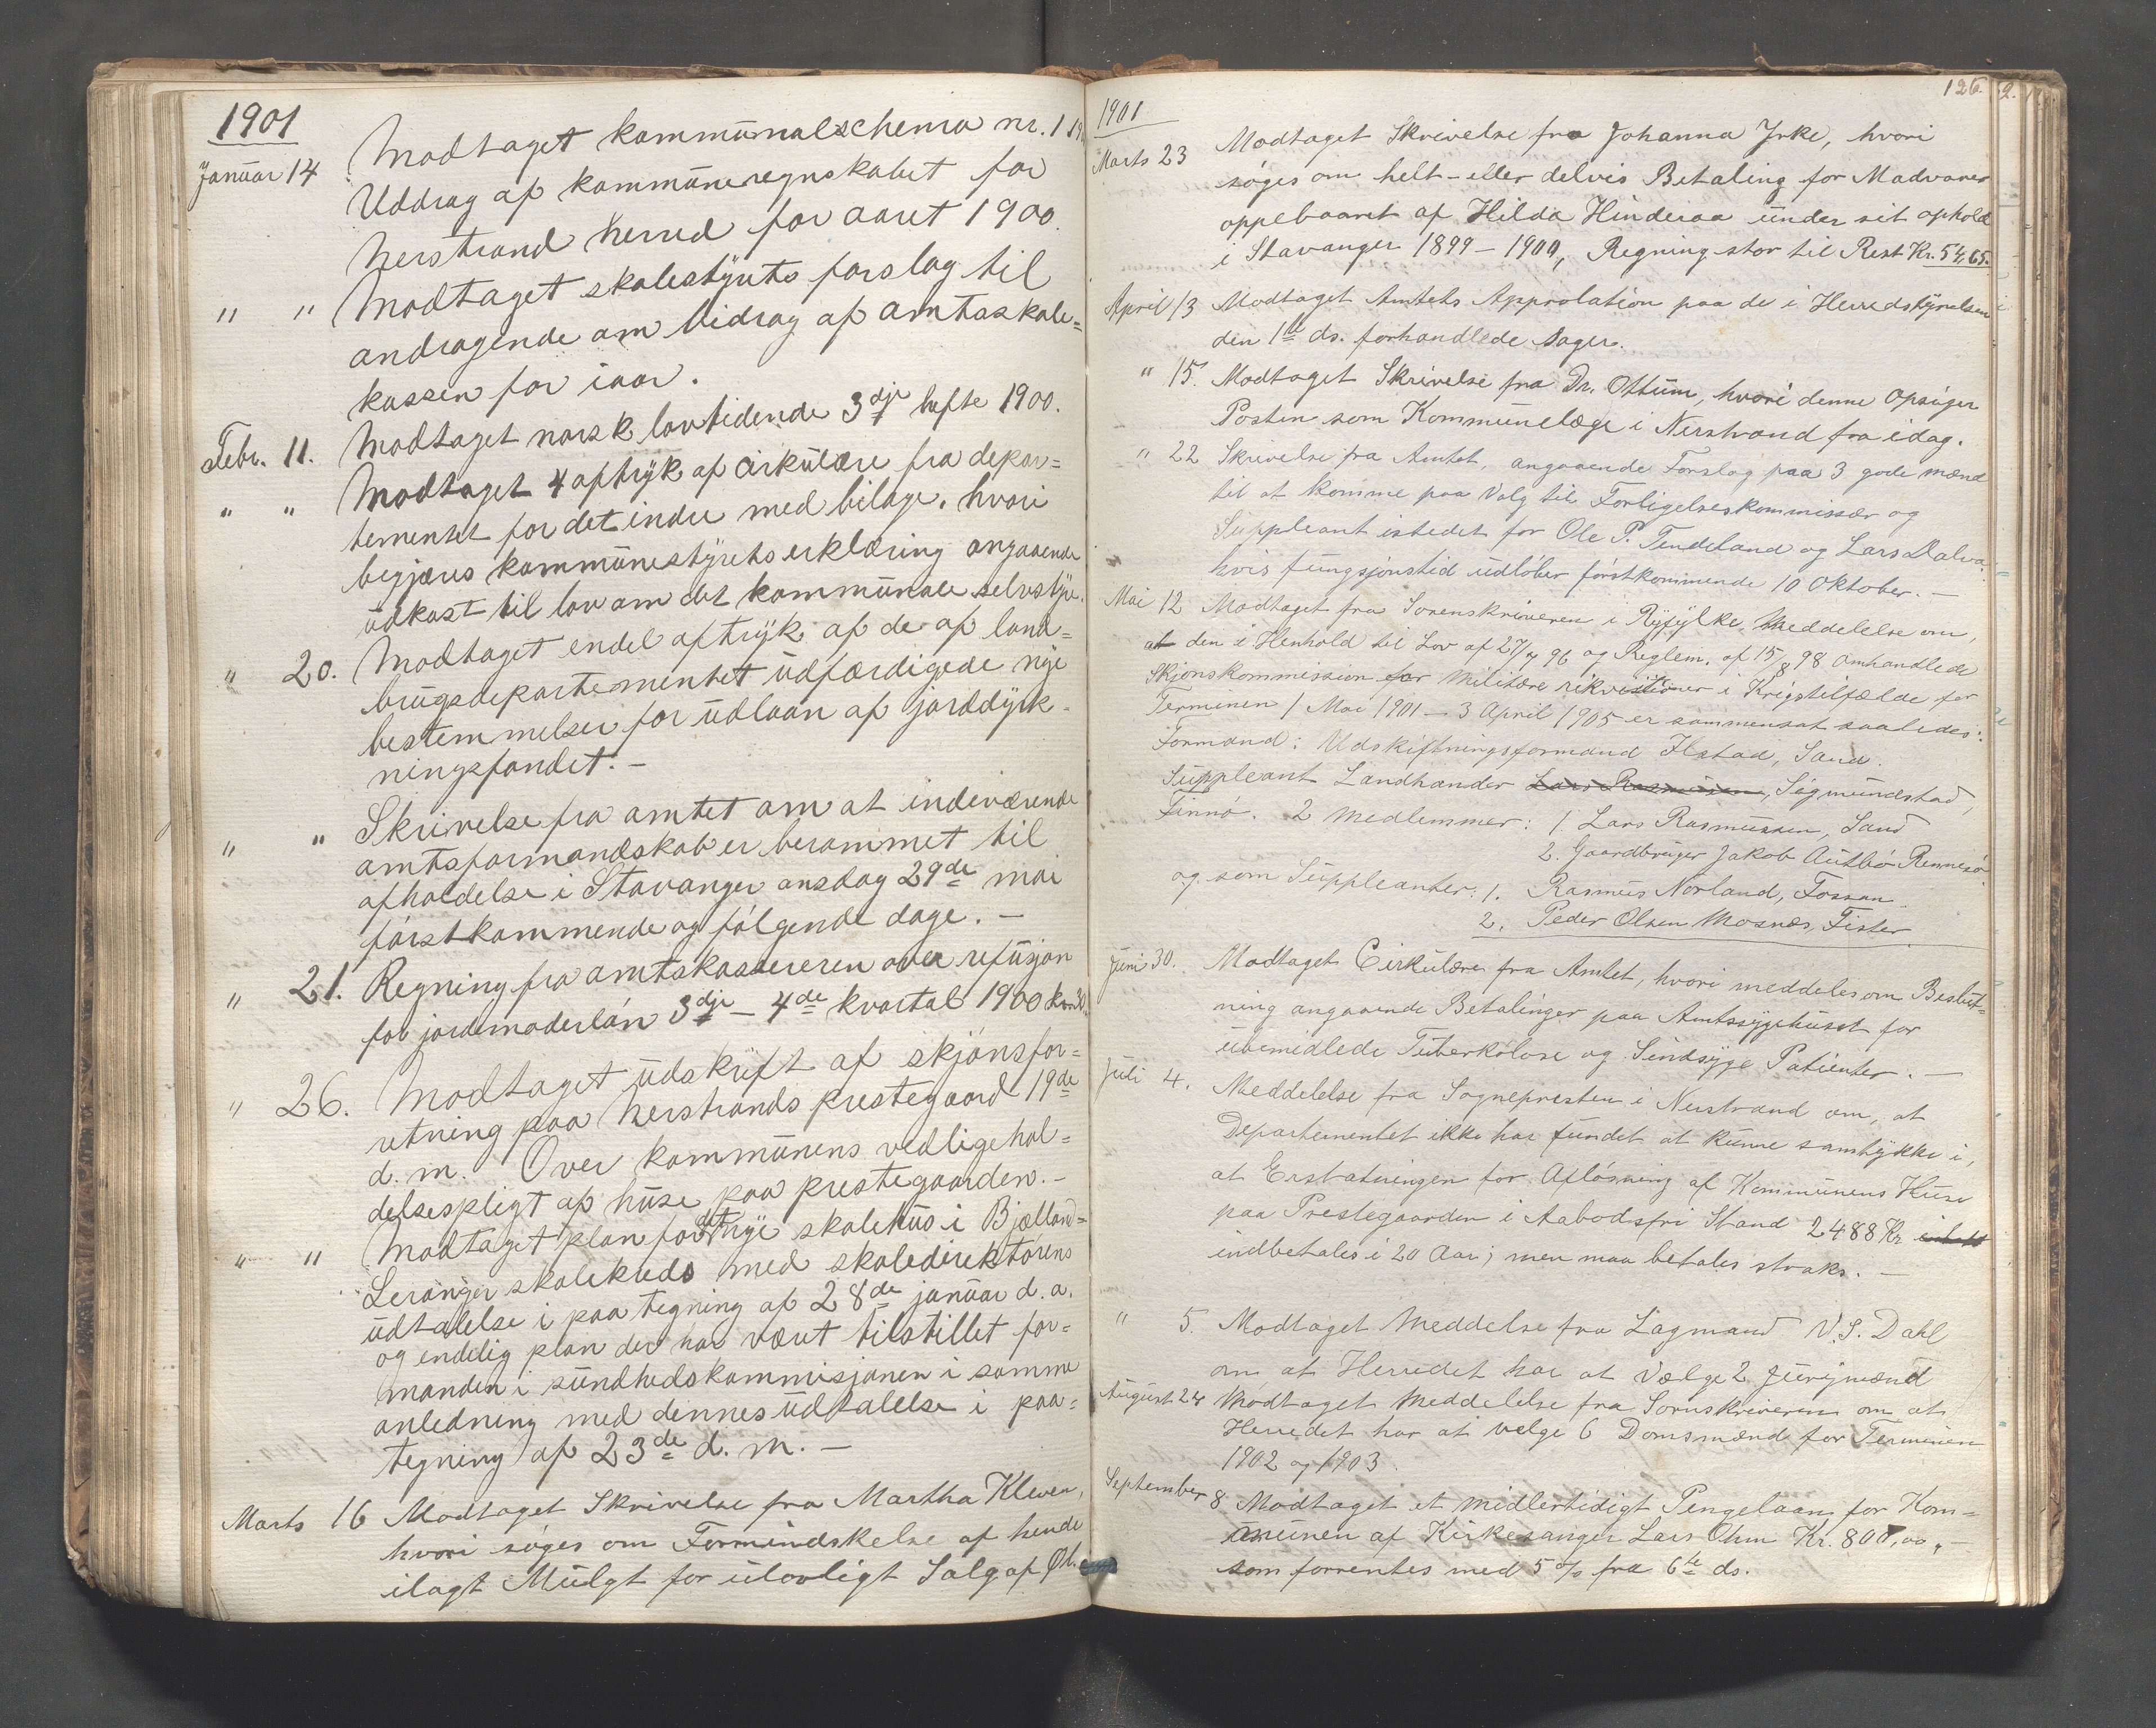 1901
Januar 14 Modtaget kommunalschema nr. 1
Uddrag af kommuneregnskabet for
Nerstrand herred for aaret 1900.
" " Modtaget skolestyrets forslag til
andragende om bidrag af amtsskole=
kassen for iaar.
Febr. 11. Modtaget norsk lovtidende 3dje hefte 1900.
" " Modtaget 4 aftryk af cirkulære fra depar=
tementet for det indre med bilage, hvori
begjæres kommunestyrets erklæring angaaende
udkast til lov om det kommunale selvstyre.
" 20. Modtaget endel aftryk af de af land=
brugsdepartementet udfærdigede nye
bestemmelser for udlaan af jorddyrk=
ningsfondet. –
" " Skrivelse fra amtet om at indeværende
amtsformandskab er berammet til
afholdelse i Stavanger onsdag 29de mai
førstkommende og følgende dage. –
" 21. Regning fra amtskassereren over refusjon
for jordemoderløn 3dje – 4de kvartal 1900
" 26. Modtaget udskrift af skjønsfor=
retning paa Nerstrands prestegaard 19de
d. m. Over kommunens vedligehol=
delsespligt af huse paa prestegaarden. –
" " Modtaget plan for et nye skolehus i Bjelland=
Leranger skolekreds med skoledirektørens
udtalelse i paategning af 28de januar d. a.
og endelig plan der har været tilstillet for=
manden i sundhedskommisjonen i samme
anledning med dennes udtalelse i paa=
tegning af 23de d. m. –
Marts 16 Modtaget Skrivelse fra Martha Kleven,
hvori søges om Formindskelse af hende
ilagt Mulgt for ulovligt Salg af Øl.
126
1901
Marts 23 Modtaget Skrivelse fra Johanna Yrke, hvori
søges om helt- eller delvis Betaling for Madvarer
oppebaaret af Hilda Hinderaa under sit ophold
i Stavanger 1899 – 1900, Regning stor til Rest Kr. 54,65.
April 13 Modtaget Amtets Approbation paa de i Herredstyrelsen
den 1ste ds. forhandlede sager.
" 15. Modtaget Skrivelse fra Dr. Ottum, hvori denne opsiger
Posten som Kommunelæge i Nerstrand fra idag.
" 22 Skrivelse fra Amtet, angaaende Forslag paa 3 gode mænd
til at komme paa Valg til Forligelseskommissær og
Suppleant istedet for Ole P. Tendeland og Lars Dalva
hvis fungsjonstid udløber førstkommende 10 Oktober. –
Mai 12 Modtaget fra Sorenskriveren i Ryfylke Meddelelse om,
at den i Henhold til Lov af 27/7 96 og Reglem. af 15/8 98 omhandlede
Skjønskommission for Militære rikvisitioner i Krigstilfælde for
Terminen 1 Mai 1901 – 3 April 1905 er sammensat saaledes:
Formand: Udskiftningsformand Ilstad, Sand.
Suppleant Landhandler Lars Rasmussen, Sigmundstad,
Finnø. 2 Medlemmer: 1. Lars Rasmussen, Sand
2. Gaardbruger Jakob Autbø Rennesø
og som Suppleanter: 1. Rasmus Norland, Fossan.
2. Peder Olsen Mosnæs, Fister
Juni 30. Modtaget Cirkulære fra Amtet, hvori meddeles om Beslut=
ning angaaende Betalinger paa Amtssygehuset for
ubemidlede Tuberkuløse og Sindsyge Patienter. –
Juli 4. Meddelelse fra Sognepresten i Nerstrand om, at
Departementet ikke har fundet at kunne samtykke i,
at Erstatningen for Afløsning af Kommunens Huse
paa Prestegaarden i Aabodsfri Stand 2488 Kr
indbetales i 20 Aar; men maa betales straks. –
" 5. Modtaget Meddelse fra Lagmand V. S. Dahl
om at Herredet har at vælge 2 Jurymænd
August 24 Modtaget Meddelelse fra Sornskriveren om at
Herredet har at velge 6 Domsmænd for Terminen
1902 og 1903.
September 8 Modtaget et midlertidigt Pengelaan for Kom=
munen af Kirkesanger Lars Ohm Kr. 800,00, –
som forrentes med 5 % fra 6te ds.